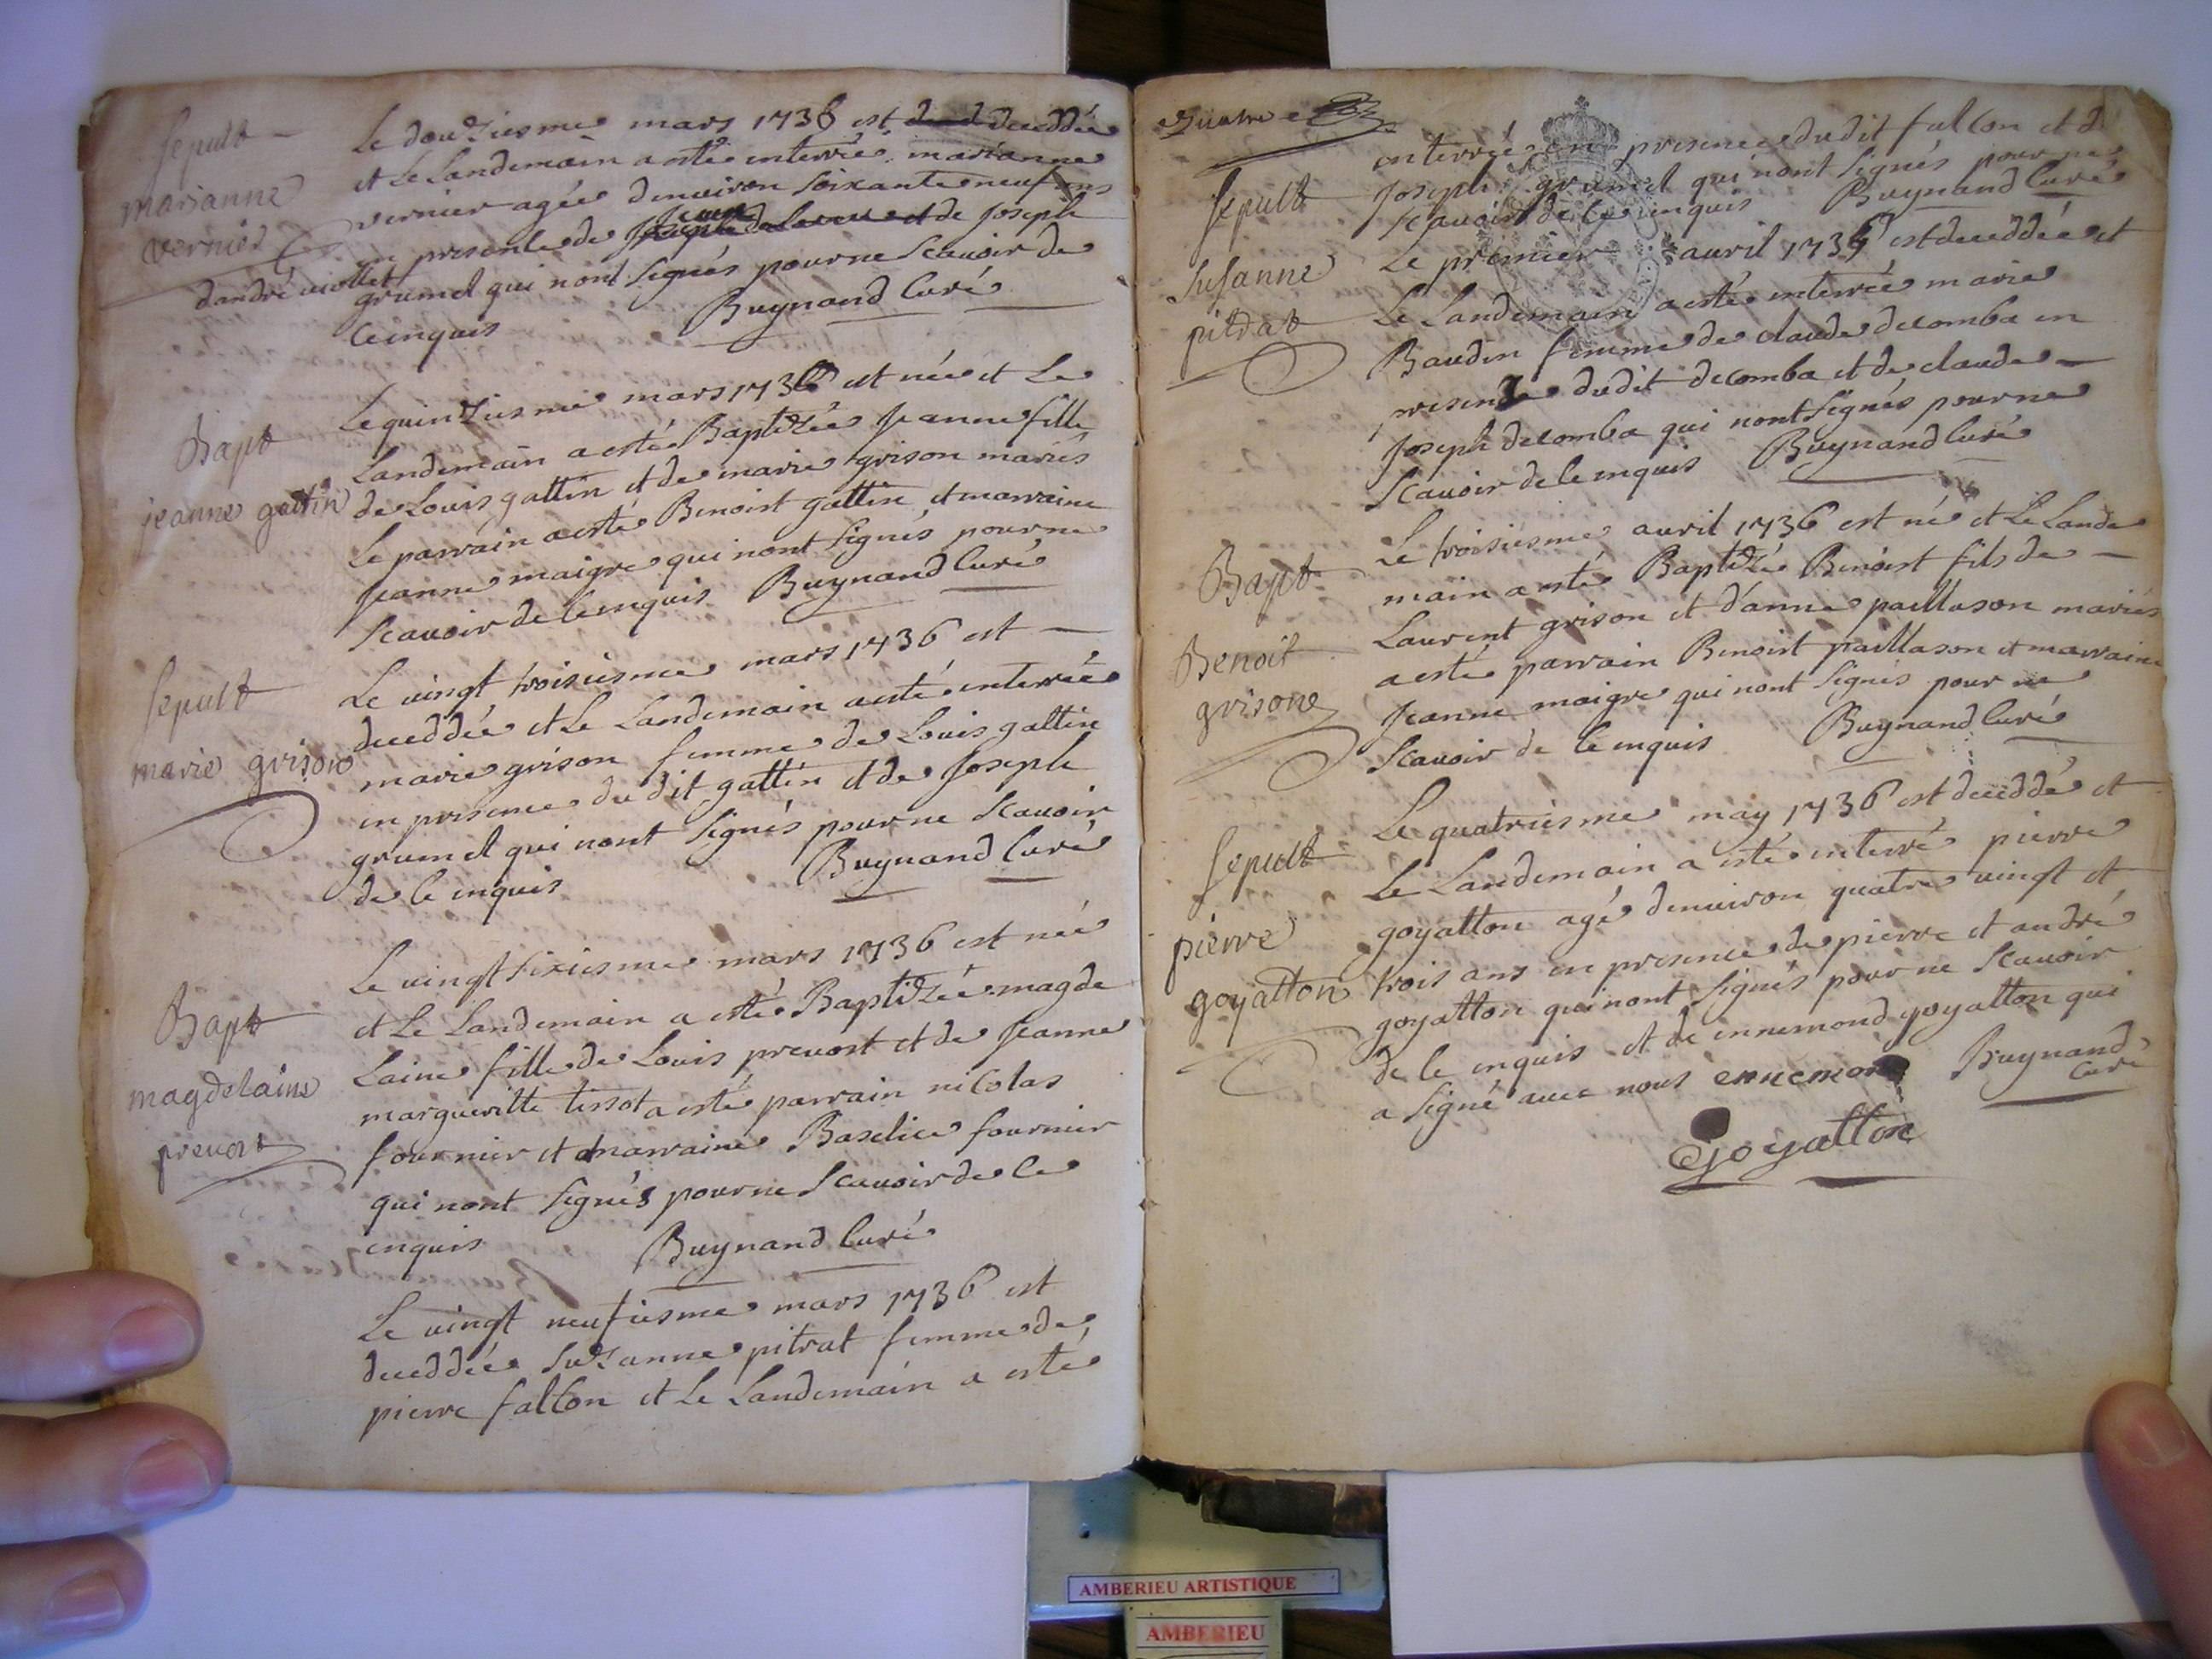 Sepult
marianne
vernier
Le douziesme mars 1736 est deceddée
et Le Landemain a esté interrée marianne
vernier agée denuiron soixante neuf ans
en presence de et de Joseph
dandré viollet
grumel qui nont signés pour ne scauoir de
ce enquis Buynand Curé
Bapt
jeanne gattin
Le quinziesme mars 1736 est née et Le
Landemain a esté Baptizée Jeanne fille
de Louis gattin et de marie grison mariés
Le parrain a esté Benoist gattin et marraine
Jeanne maigre qui nont signés pour ne
scauoir de ce enquis Buynand Curé
Sepult
marie grison
Le vingt troisiesme mars 1736 est
deceddée et Le Landemain a esté interrée
marie grison femme de Louis gattin
en presence dudit gattin et de Joseph
grumel qui nont signés pour ne scauoir
de ce enquis Buynand Curé
Bapt
magdelaine
preuost
Le vingt sixiesme mars 1736 est née
et Le Landemain a esté Baptizée magde
Laine fille de Louis preuost et de Jeanne
margueritte tissot a esté parrain nicolas
fournier et marraine Baselice fournier
qui nont signés pour ne scauoir de ce
enquis Buynand Curé
Le vingt neufiesme mars 1736 est
deceddée suzanne pitrat femme de
pierre falcon et Le Landemain a esté
quatre
Sepult
Susanne
pitrat
interrée en presence dudit falcon et de
Joseph grumel qui nont signés pour ne
scauoir de ce enquis Buynand Curé
Le premier auril 1736 est deceddée et
Le Landemain a esté interrée marie
Baudin femme de claude decomba en
presence dudit decomba et de claude
Joseph decomba qui nont signés pour ne
scauoir de ce enquis Buynand Curé
Bapt
Benoit
grison
Le troisiesme auril 1736 est né et Le Lande
main a esté Baptizé Benoist fils de
Laurent grison et d'anne paillason mariés
a esté parrain Benoist paillason et marraine
Jeanne maigre qui nont signés pour ne
scauoir de ce enquis Buynand Curé
Sepult
pierre
goyatton
Le quatriesme may 1736 est deceddé et
Le Landemain a esté interré pierre
goyatton agé denuiron quatre vingt et
trois ans en presence de pierre et andré
goyatton qui nont signés pour ne scauoir
de ce enquis et de ennemond goyatton qui
a signé auec nous ennemon Buynand
Curé
Goyatton
AMBERIEU ARTISTIQUE
AMBERIEU